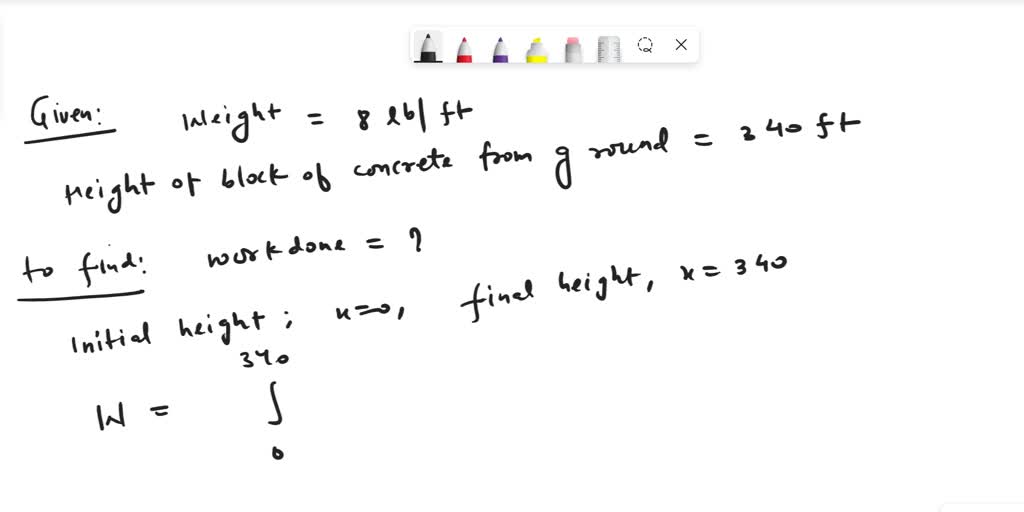 Given: Weight = 8 lb/ft
Height of block of concrete from ground = 340 ft
to find: workdone = ?
Initial height; x=0, final height, x=340
340
W = ∫
0